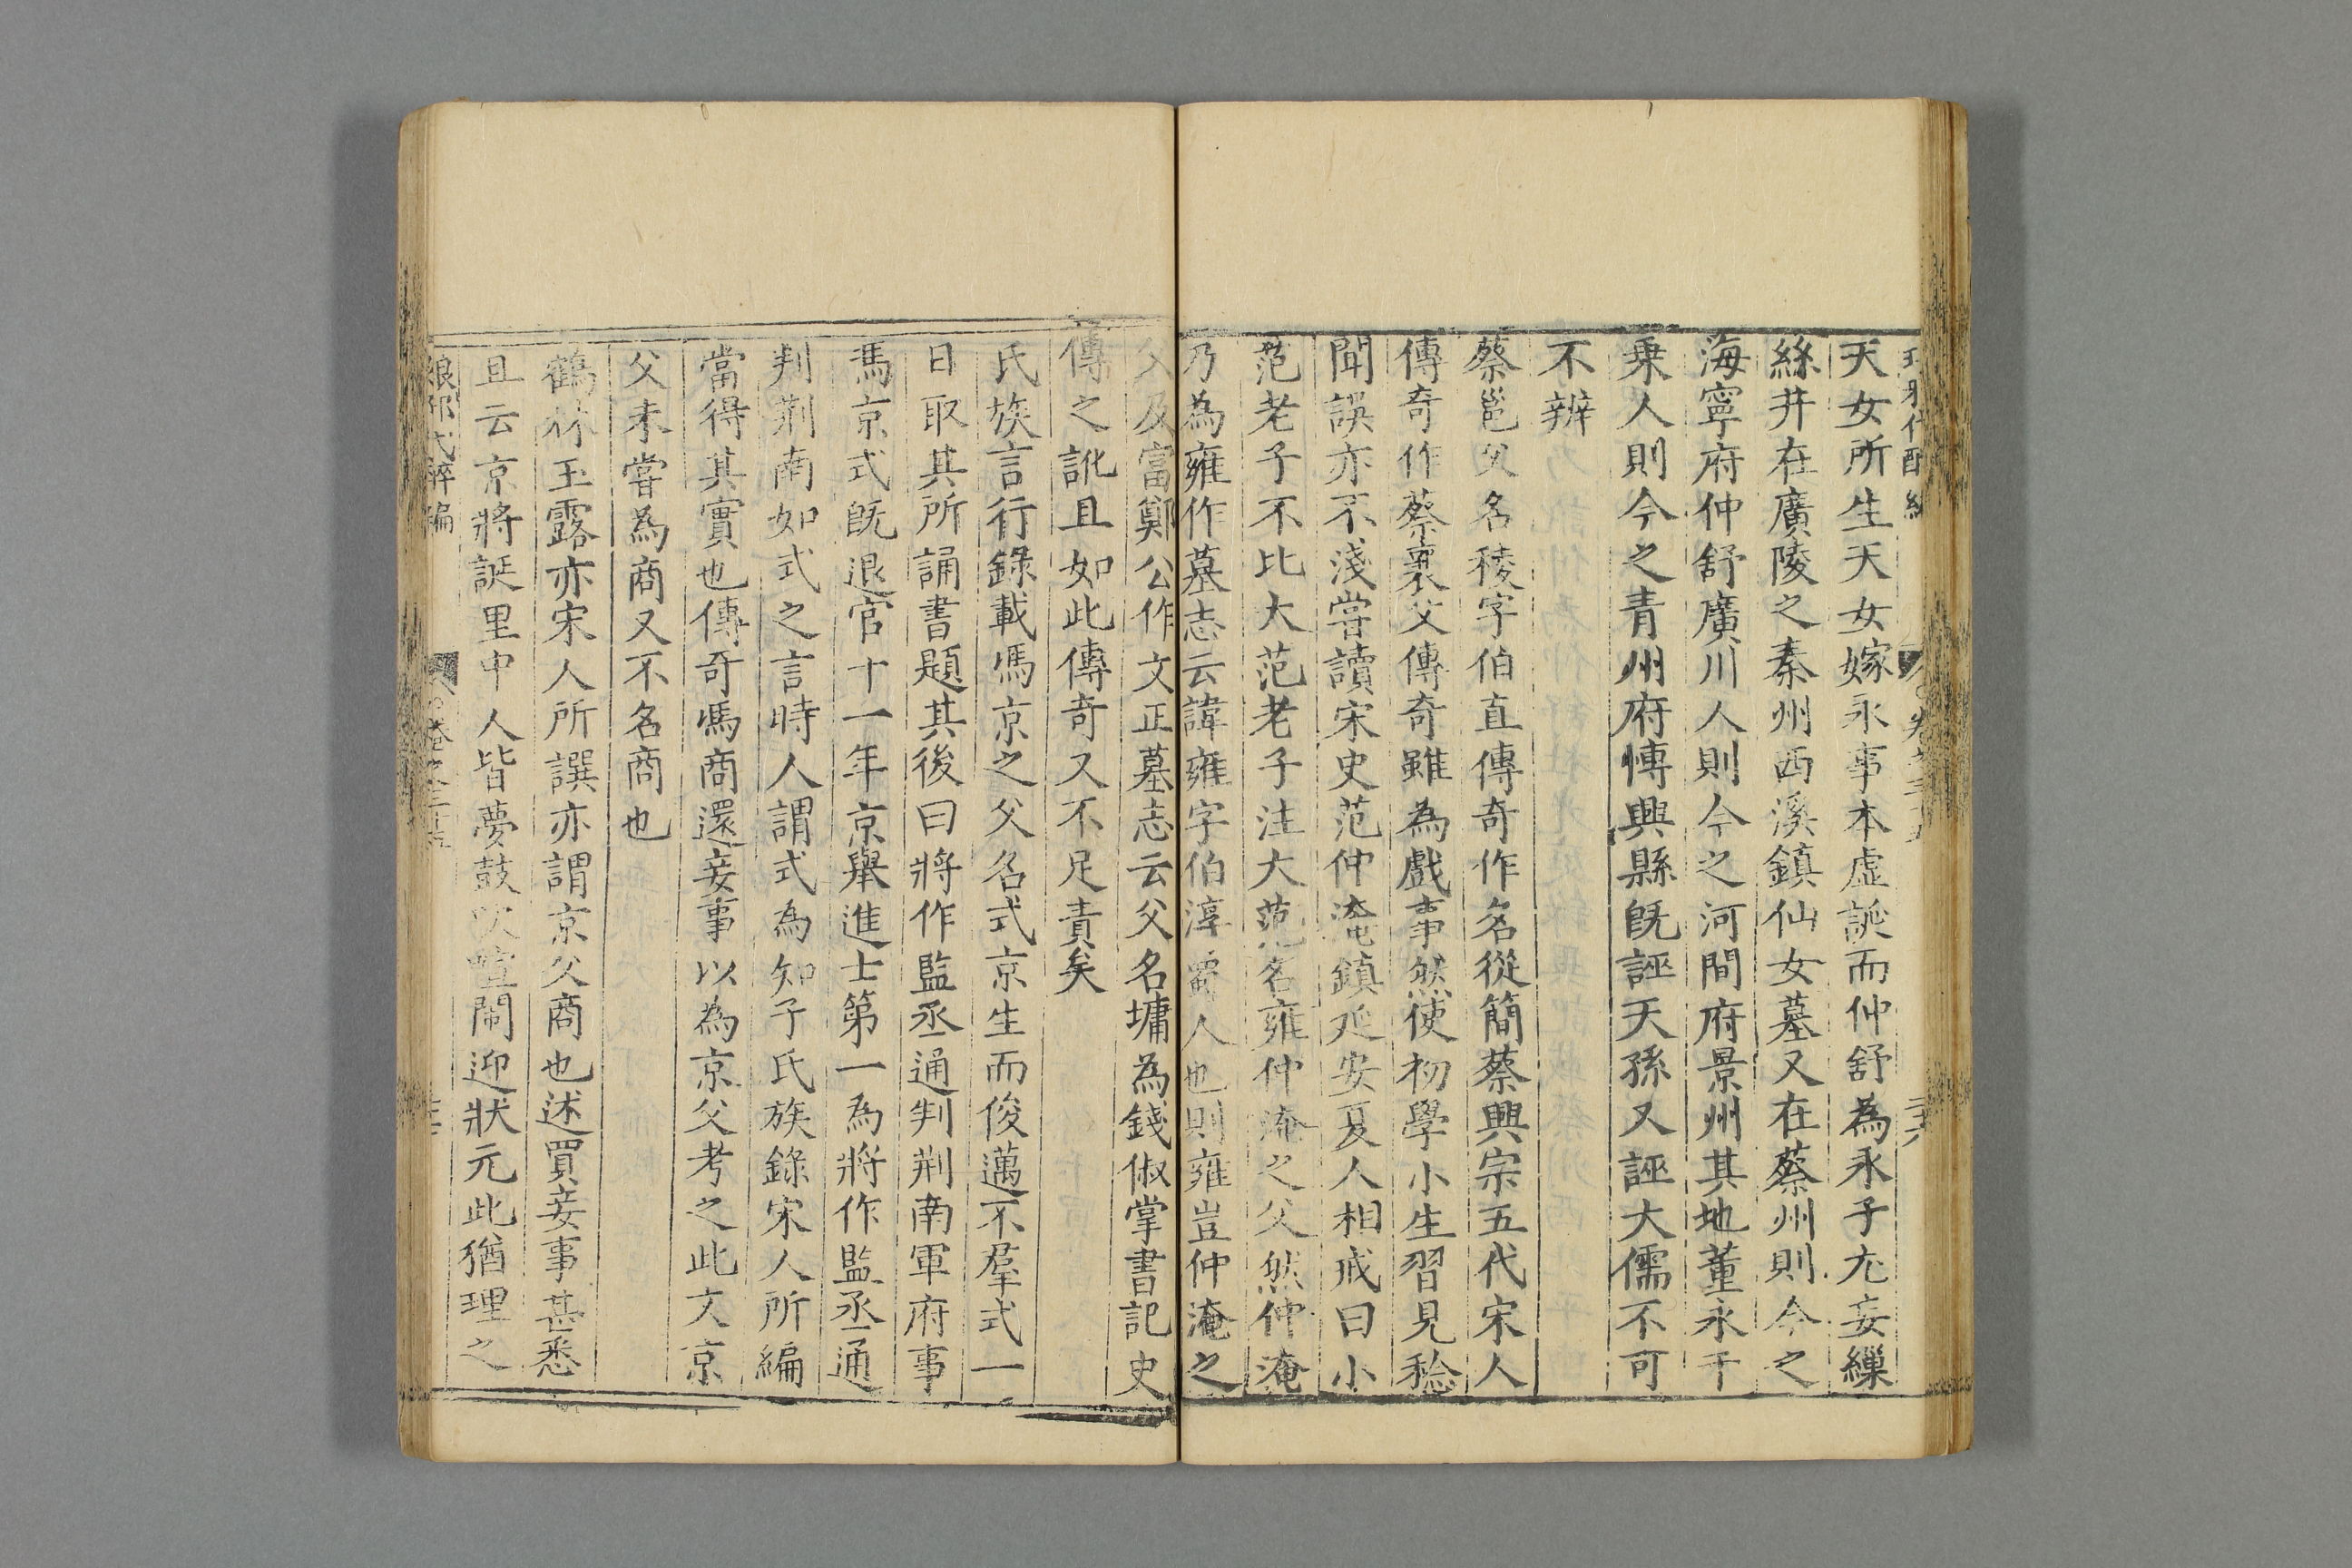 天女所生天女嫁永事本虛誕而仲舒為永子尢妄繅
絲井在廣陵之秦州西溪鎮仙女墓又在蔡州則今之
海寧府仲舒廣川人則今之河間府景州其地董永千
乗人則今之青州府愽興縣旣誣天孫又誣大儒不可
不辨
蔡邕父名稜字伯直傳奇作名從簡蔡興宗五代宋人
傳奇作蔡襄父傳奇雖為戲事然使初學小生習見稔
聞誤亦不淺嘗讀宋史范仲淹鎮延安夏人相戒曰小
范老子不比大范老子注大范名雍仲淹之父然仲淹
乃為雍作墓志云諱雍字伯淳蜀人也則雍豈仲淹之
父及富鄭公作文正墓志云父名墉為錢俶掌書記史
傳之訛且如此傳奇又不足責矣
氏族言行錄載馮京之父名式京生而俊邁不羣式一
日取其所誦書題其後曰將作監丞通判荆南軍府事
馮京式旣退官十一年京舉進士第一為將作監丞通
判荆南如式之言時人謂式為知子氏族錄宋人所編
當得其實也傳奇馮商還妾事以為京父考之此文京
父未嘗為商又不名商也
鶴林玉露亦宋人所譔亦謂京父商也述買妾事甚悉
且云京將誕里中人皆夢鼓吹喧鬧迎狀元此猶理之
卷之三十五